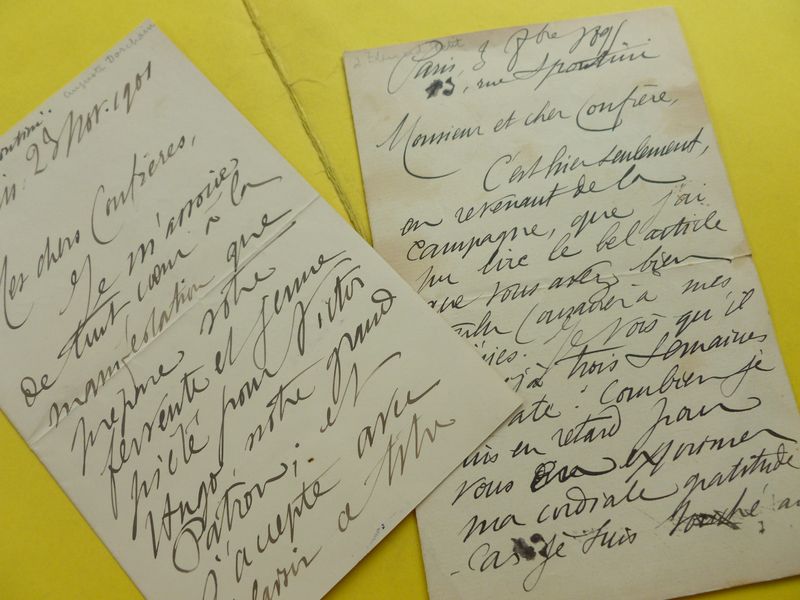 Auguste Dorchain
23 Nov. 1901
chers Confrères,
Je m'associe
de tout cœur à la
manifestation que
prépare votre
fervente et jeune
piété pour Victor
Hugo, notre grand
Patron; et
J'accepte avec
plaisir a
Paris, 3 8bre
13, rue Spontini
Monsieur et cher Confrère,
C'est hier seulement,
en revenant de la
campagne, que j'ai
pu lire le bel article
que vous avez bien
consacrer à mes
Je vois qu'il
trois semaines
date! Combien je
suis en retard pour
vous exprimer
ma cordiale gratitude
- car je suis touché